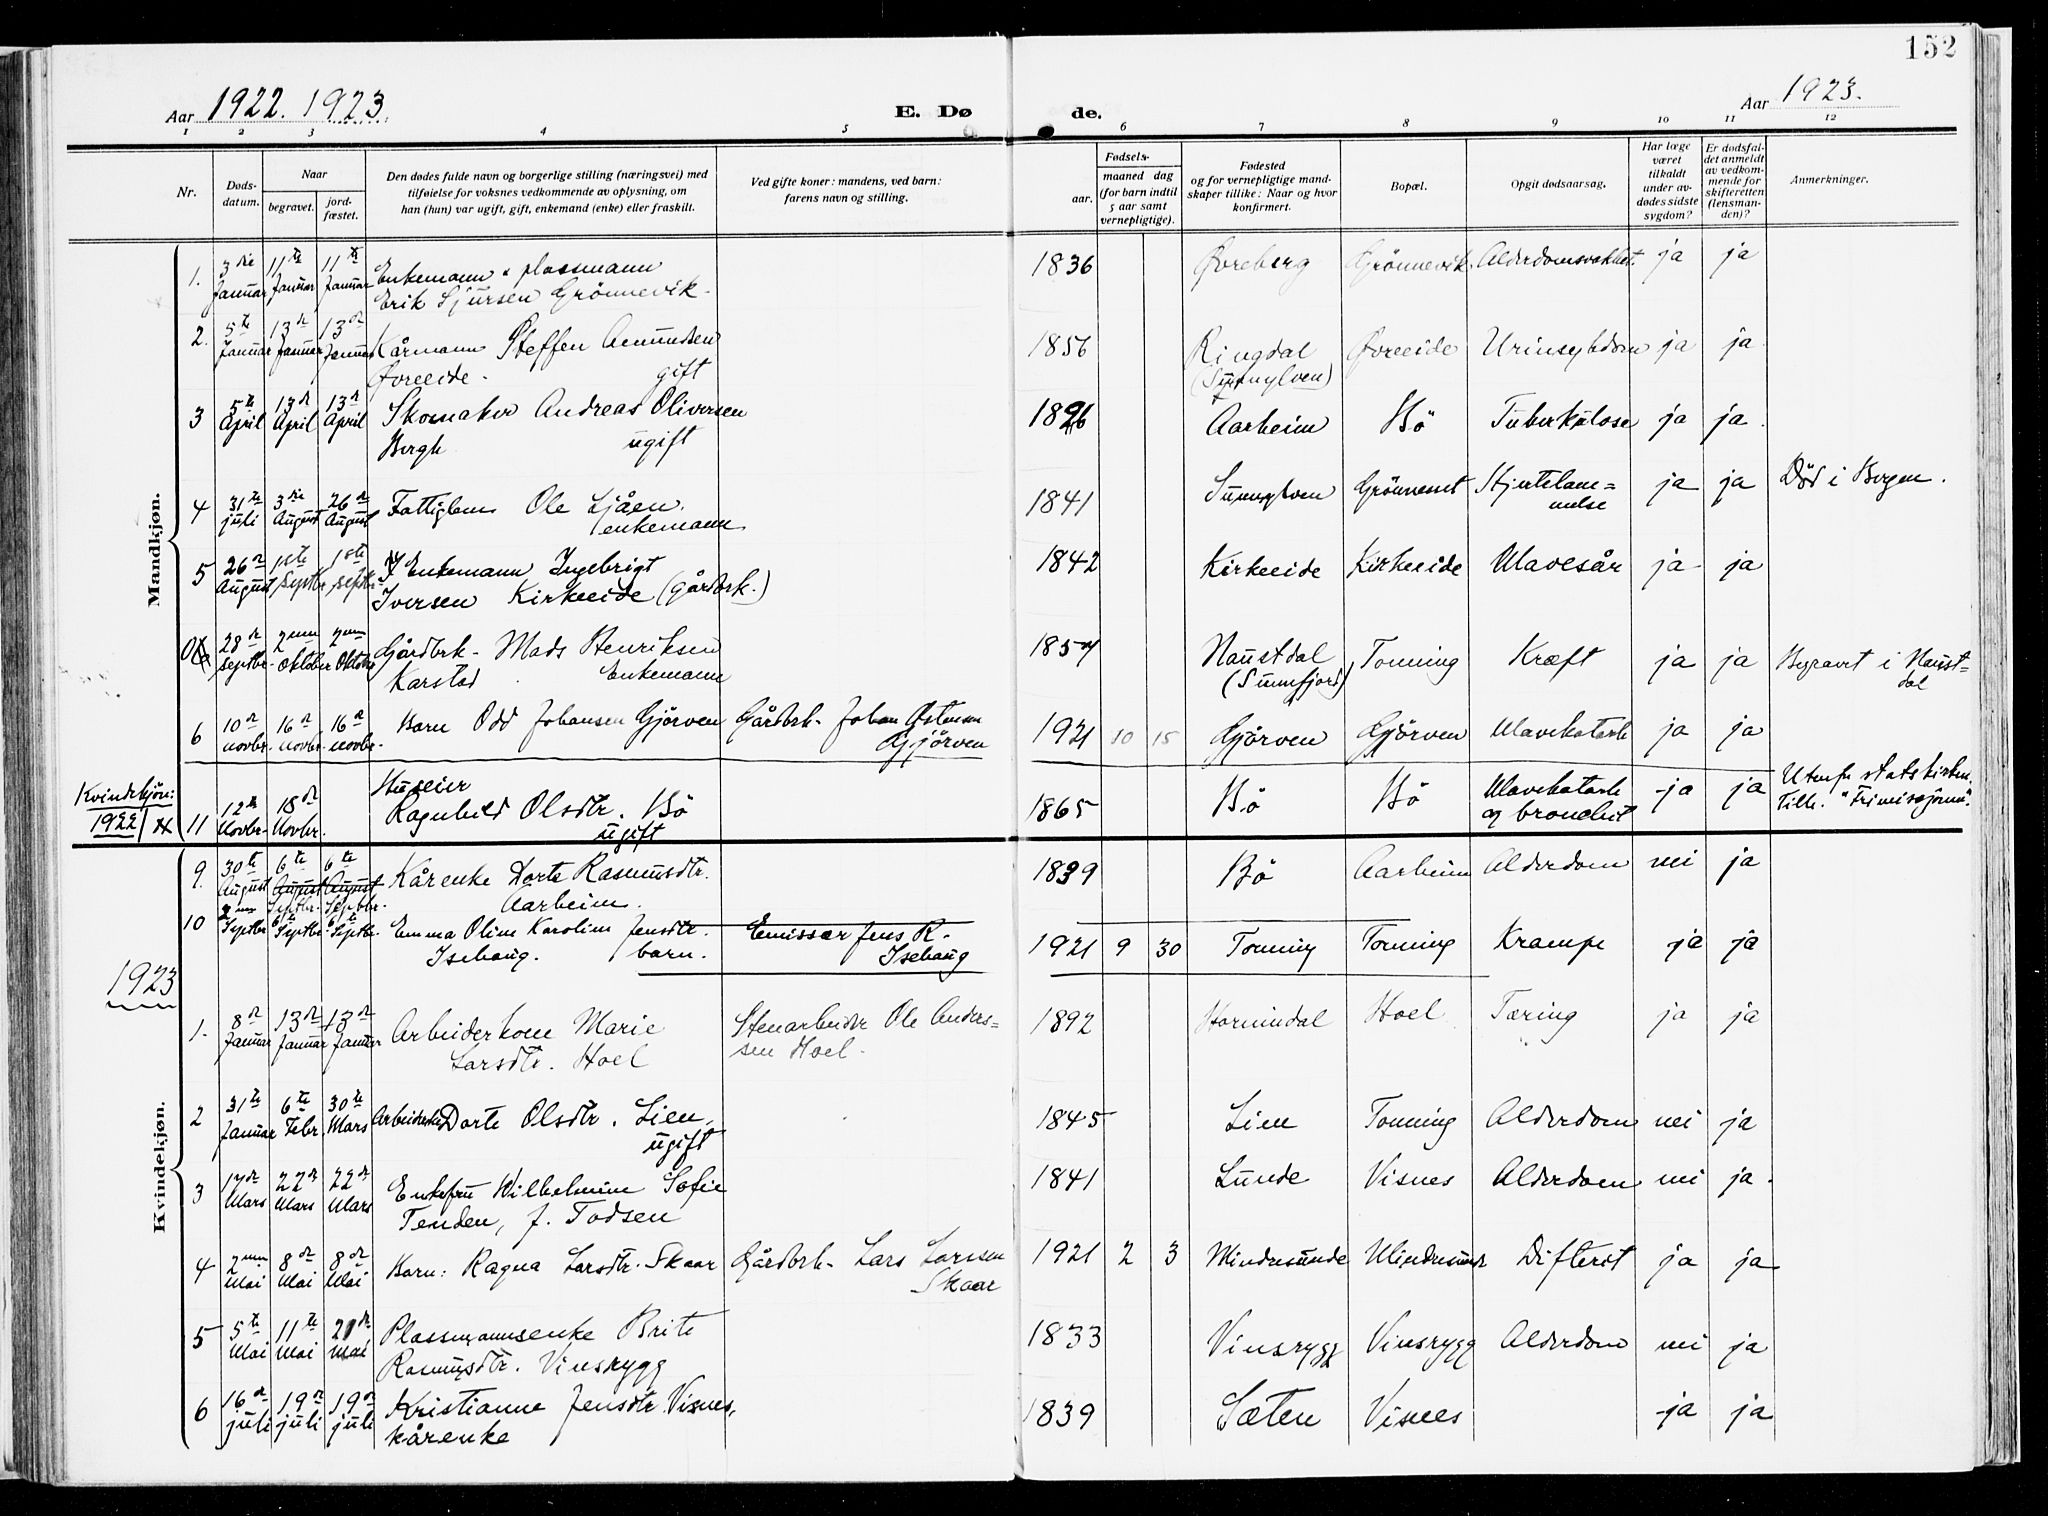 152
Aar 1922. 1923.
E. Dø de.
Aar 1923.
1 2 3 4 5 6 7 8 9 10 11 12
Nr.
Døds-
datum.
Naar
begravet.
jord-
fæstet.
Den dødes fulde navn og borgerlige stilling (næringsvei) med
tilføielse for voksnes vedkommende av oplysning, om
han (hun) var ugift, gift, enkemand (enke) eller fraskilt.
Ved gifte koner: mandens, ved barn:
farens navn og stilling.
Fødsels-
aar.
maaned dag
(for barn indtil
5 aar samt
vernepligtige).
Fødested
og for vernepligtige mand-
skaper tillike: Naar og hvor
konfirmert.
Bopæl.
Opgit dødsaarsag.
Har læge
været
tilkaldt
under av-
dødes sidste
sygdom?
Er dødsfal-
det anmeldt
av vedkom-
mende for
skifteretten
(lensman-
den)?
Anmerkninger.
Mandkjøn.
1. 3die Januar 11te Januar 11te Januar Enkemann & plassmann
Erik Sjursen Grönnevik. 1836 Øvreberg Grönnevik Alderdomsvakhet. ja ja
2. 5te Januar 13de Januar 13de Januar Kårmann Steffen Amundsen
Øvreeide. gift 1856 Ringdal
(Sunnylven) Øvreeide Urinsykdom ja ja
3 5te April 13de April 13de April Skomaker Andreas Oliversen
Bergh ugift 1896 Aarheim Bö Tuberkulose ja ja
4 31te juli 3die August 26de August Fattiglem Ole Ljåen.
enkemann 1841 Sunnylven Grönneset Hjertelam=
melse ja ja Död i Bergen.
5 26de August 1ste Septbr 1ste septbr Enkemann Ingebrigt
Iversen Kirkeeide (gårdbrk.) 1842 Kirkeeide Kirkeeide Mavesår ja ja
28de septbr. 2nen oktober 2nen Oktober Gårdbrk. Mads Henriksen
Karstad Enkemann 1857 Naustdal
(Sunnfjord) Tonning Kræft ja ja Begravet i Naust=
dal
6 10de novbr. 16de novbr. 16de novbr. Barn Odd Johansen Gjörven Gårdbrk. Johan Östensen
Gjörven 1921 10 15 Gjörven Gjörven Mavekatarh ja ja
Kvindekjön:
1922
11 12te Novbr. 18de Novbr. Huseier
Ragnhild Olsdtr. Bö
ugift 1865 Bö Bö Mavekatarh
og bronchit ja ja Utenfor statskirken.
Tilh. "Frimissjonen".
Kvindekjøn.
9. 30te August 6te August Septbr. 6te August Septbr. Kårenke Dorte Rasmusdtr.
Aarheim. 1839 Bö Aarheim Alderdom nei ja
10 2nen Septbr 6te Septbr 6te Septbr. Emma Oline Karoline Jensdtr.
Isehaug. barn. Emissær Jens R.
Isehaug 1921 9 30 Tonning Tonning Krampe ja ja
1923
1. 8de Januar 13de Januar 13de Januar Arbeiderkone Marie
Larsdtr. Hoel Stenarbeider Ole Anders=
sen Hoel. 1892 Hornindal Hoel Tæring ja ja
2 31te Januar 6te Febr. 30te Mars Arbeiderske Dorte Olsdtr. Lien,
ugift 1845 Lien Tonning Alderdom nei ja
3 17de Mars 22de Mars 22de Mars Enkefru Wilhelmine Sofie
Tenden, f. Todsen 1841 Lunde Visnes Alderdom nei ja.
4 2nen Mai 8de Mai 8de Mai Barn: Ragna Larsdtr. Skaar Gårdbrk. Lars Larssen
Skaar 1921 2 3 Mindresunde Mindresunde Difterit ja ja
5 5te Mai 11te Mai 21de Mai Plassmannsenke Brite
Rasmusdtr. Vinsrygg 1833 Vinsrygg Vinsrygg Alderdom nei ja
6 16de juli 19de juli 19de juli Kristianne Jensdtr. Visnes,
kårenke 1839 Sæten Visnes ja ja